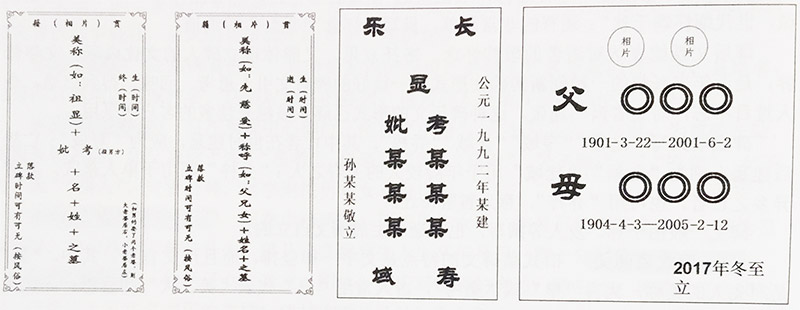 籍（相片）贯
生（时间）
终（时间）
美称（如：祖显）+
妣 考（指男方）
+名+姓+之墓
落款
立碑时间可有可无（按风俗）
籍（相片）贯
生（时间）
逝（时间）
美称（如：先 慈 爱）+称呼（如：父兄女）+姓名+之墓
落款
立碑时间可有可无（按风俗）
乐 长
公元一九九二年某建
显
考某某某
妣某某某
域 寿
孙某某敬立
相片
相片
父 ◎◎◎
1901-3-22—2001-6-2
母 ◎◎◎
1904-4-3—2005-2-12
2017年冬至
立